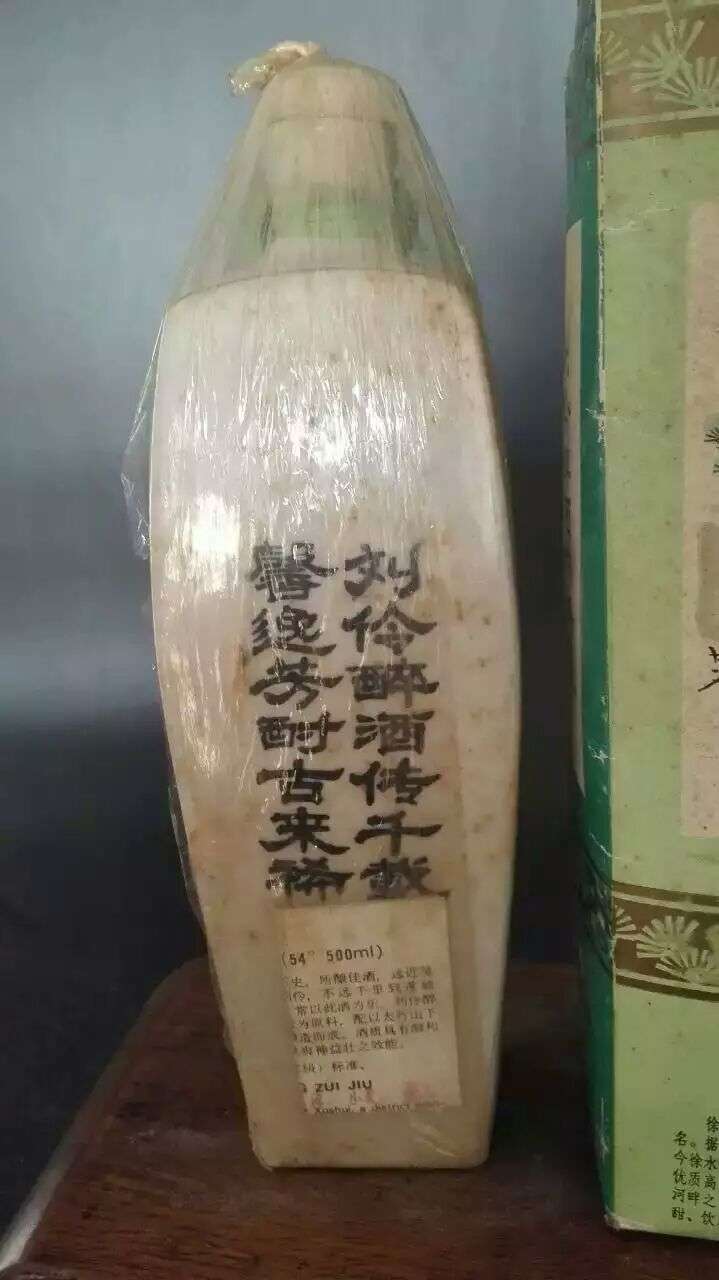 刘伶醉酒传千载
馨逸芳酎古来稀
(54° 500ml)
史，所酿佳酒，远近
伶，不远千里到
常以此酒为乐。刘伶醉
为原料，配以太行山下
造而成。酒质具有
神益壮之效能。
级）标准。
ZUI JIU
Xushui, a district
徐
名。据
今徐水
优质高
河畔之
甜、饮